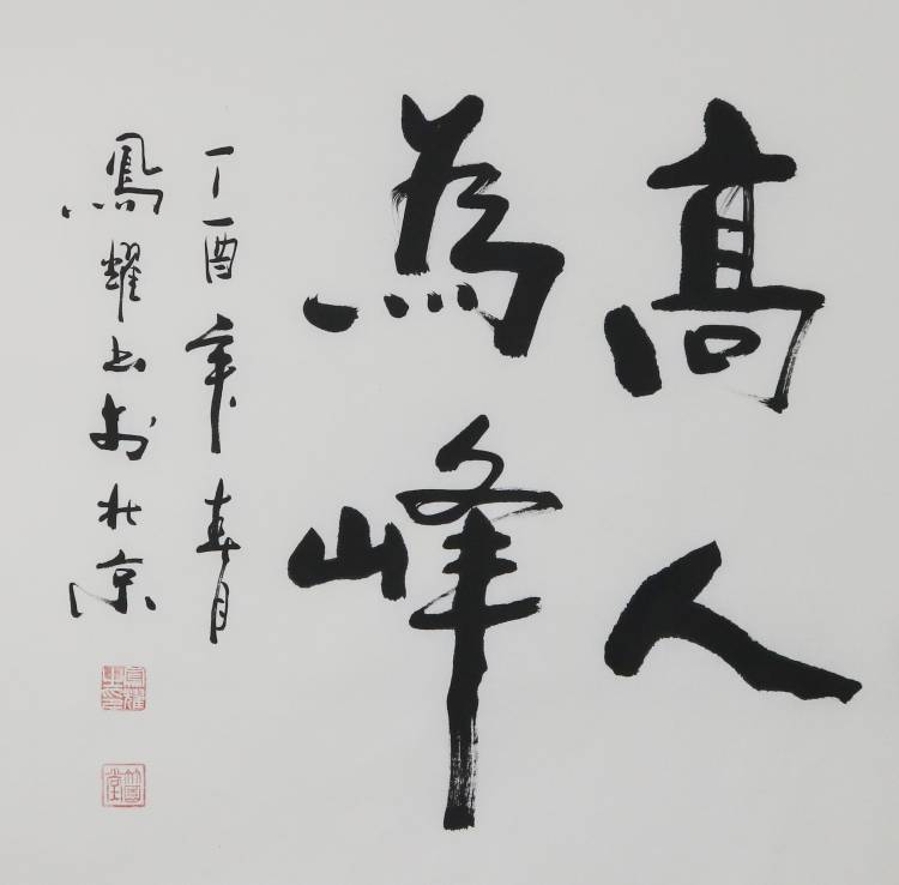 高人
為峰
丁酉年春月
鳳耀書於北京